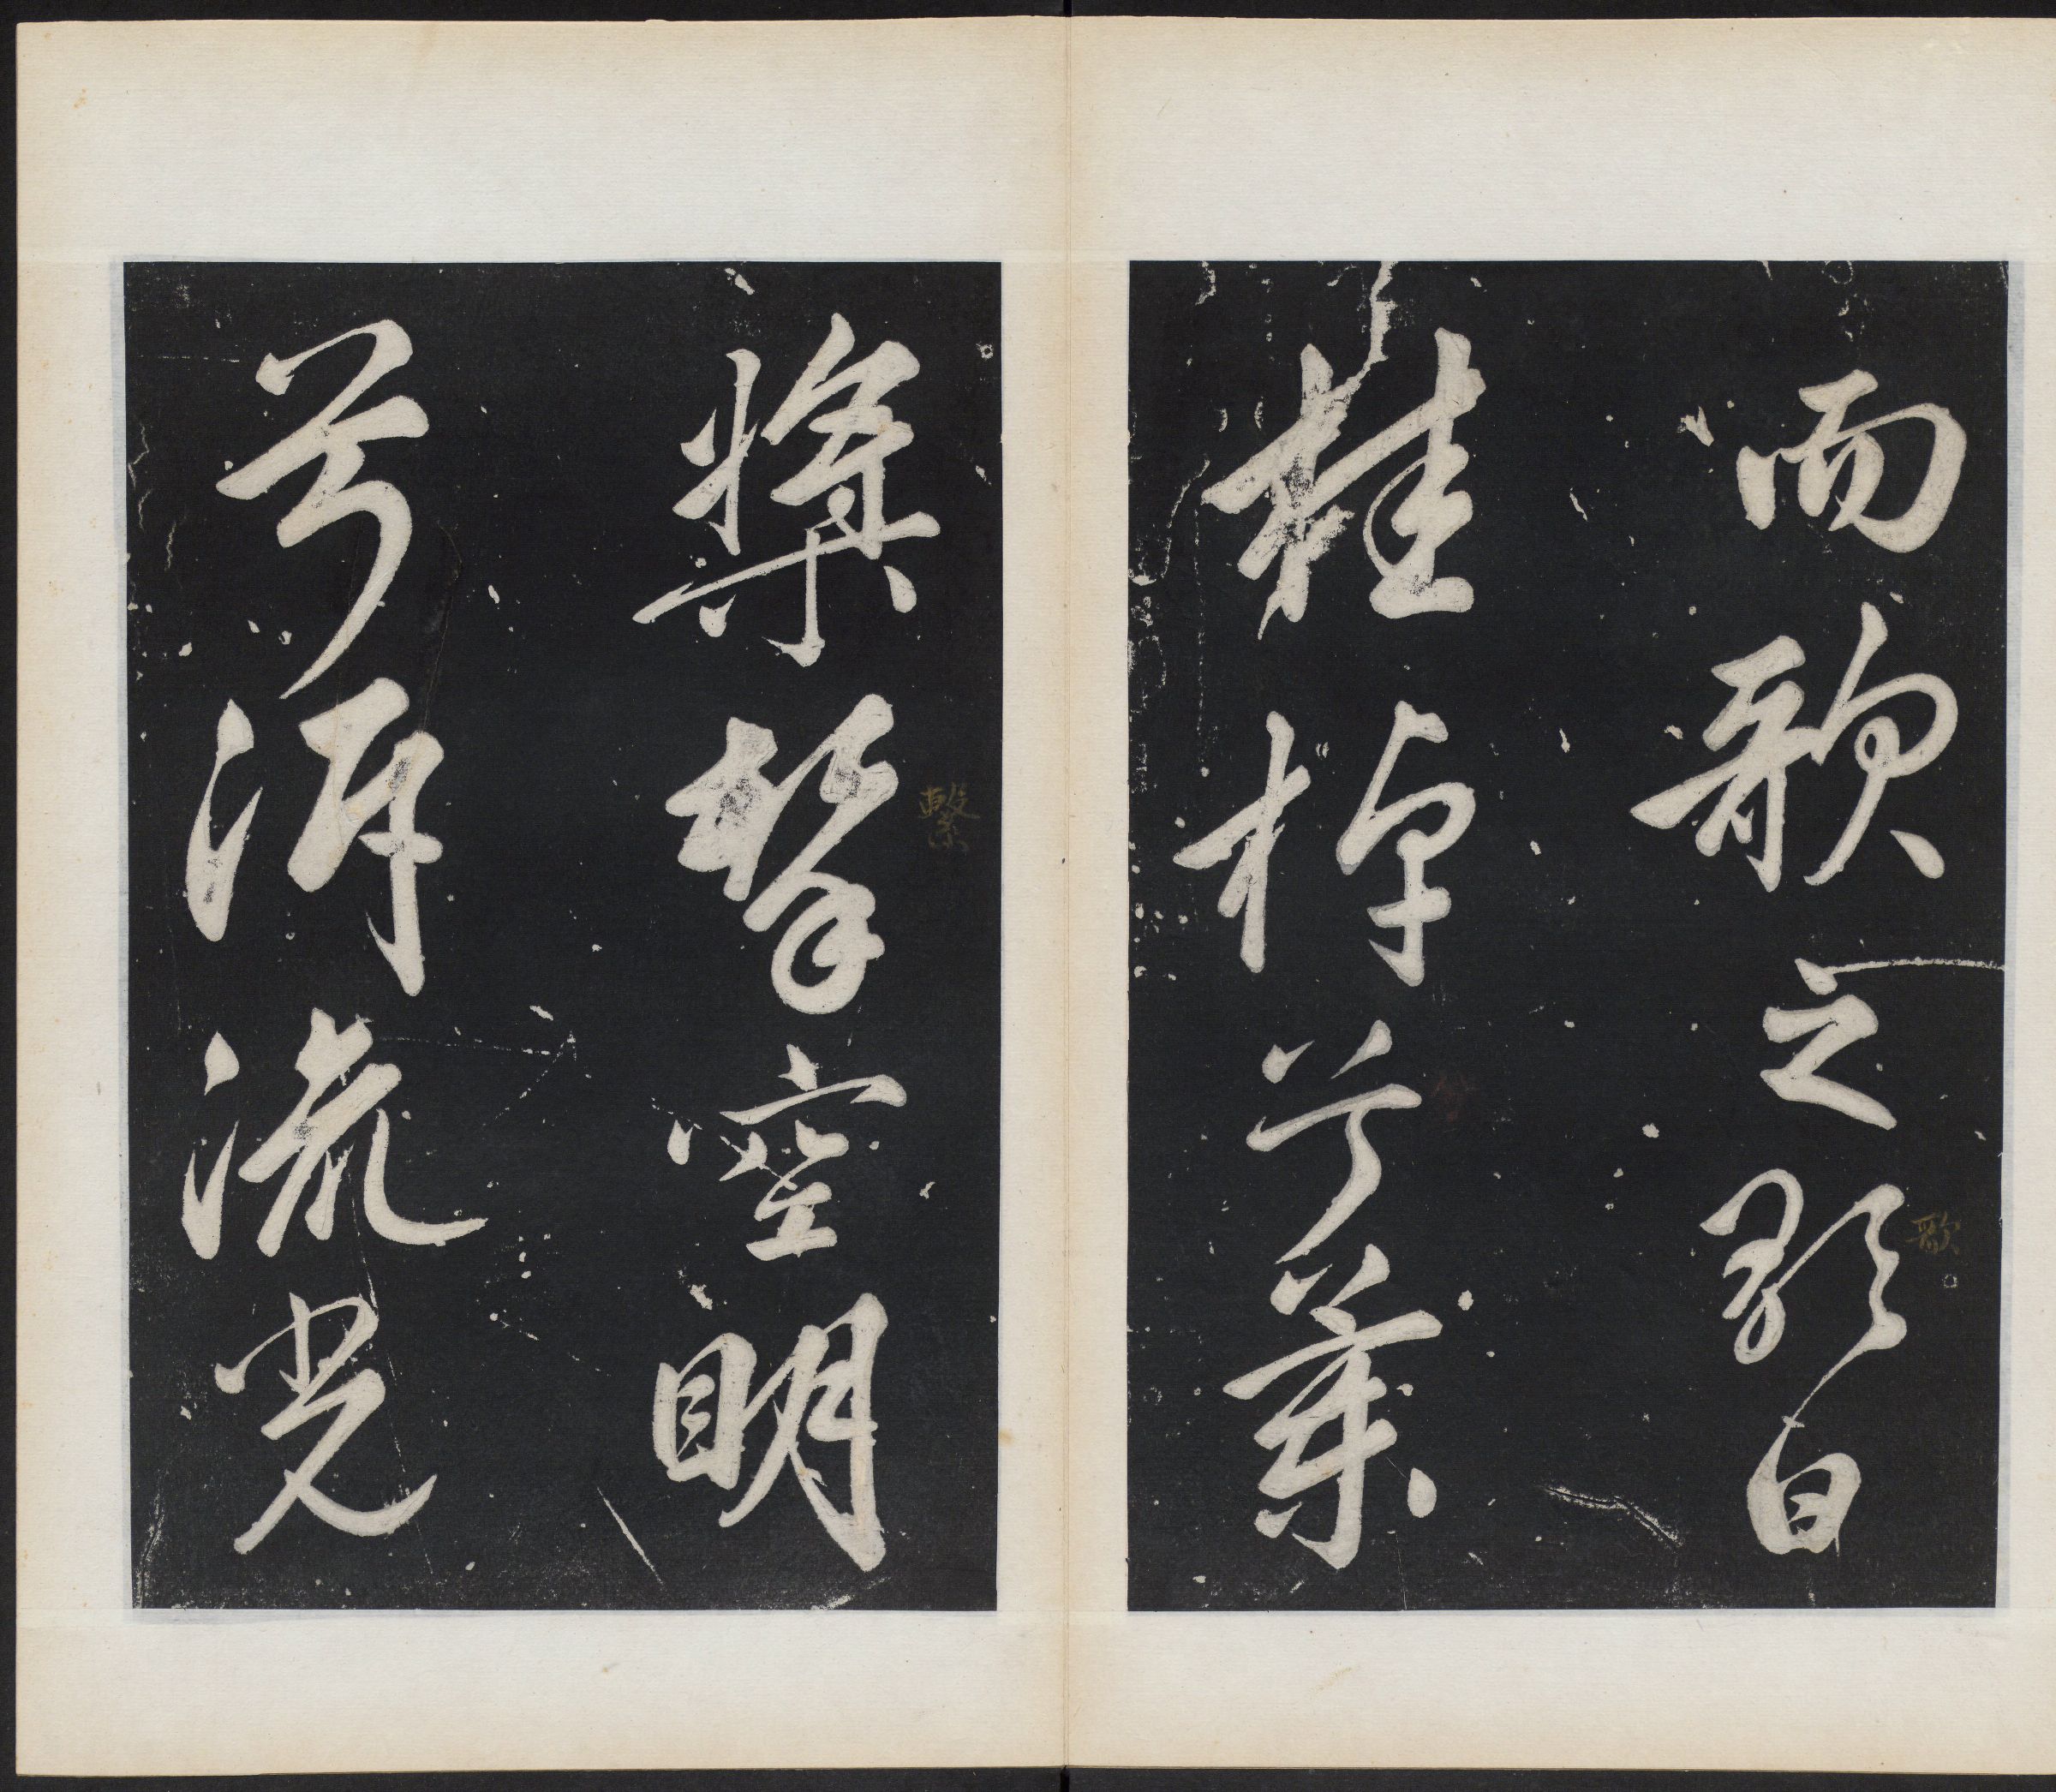 而歌之歌曰
桂棹兮蘭
槳擊空明
兮泝流光
歌